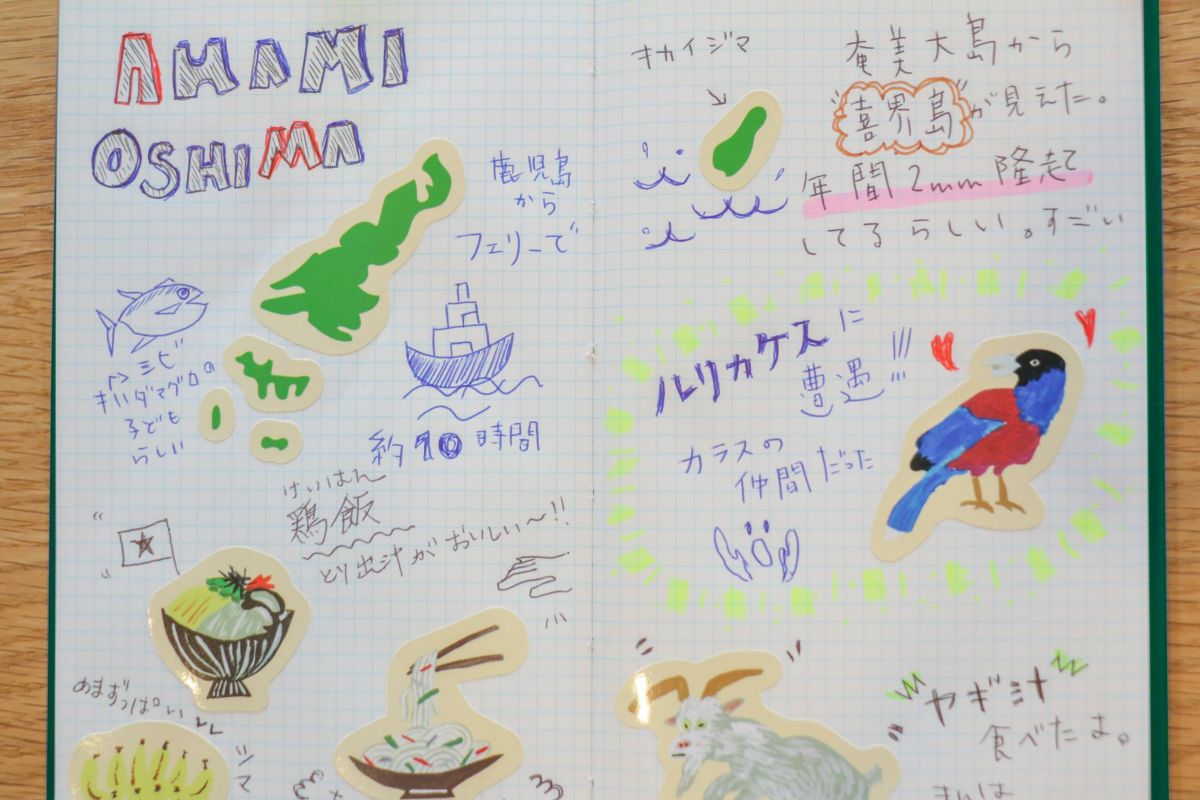 AMAMI
OSHIMA
鹿児島
から
フェリーで
約10時間
シビ
キハダマグロの
子ども
らしい
けいはん
鶏飯
とり出汁がおいしい〜!!
あまずっぱい
シマ
キカイジマ
奄美大島から
喜界島が見えた。
年間2mm隆起
してるらしい。すごい
ルリカケスに
遭遇!!!
カラスの
仲間だった
ヤギ汁
食べたよ。